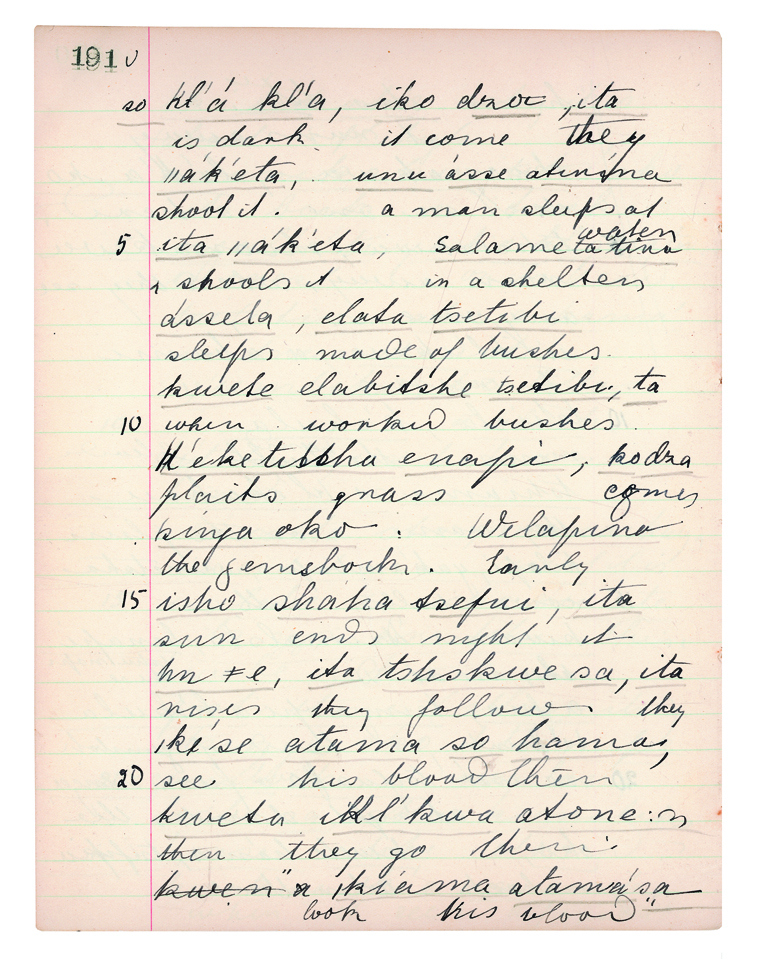 191 v
so kl'á kl'a, iko dzoc, ita
is dark. it come they
//ák'éta, unu ásse atinína
shoot it. a man sleeps at
water
5 ita //ák'éta, Salame ta tina
shoots it in a shelter
ássela, elata tsetibi
sleeps made of bushes.
kwete elabitshe tsetibi, ta
10 when worked bushes.
enapi, kodza
plaits grass comes
kinya oko. Wilapina
the gemsbock. Early
15 isho shaha tsefui, ita
sun ends night it
hn ≠e, ita tshskwe sa, ita
rises they follow they
atama so hama,
20 see his blood then
kweta atone:n
then they go then
kwen "a ikíama atamása
look his blood"